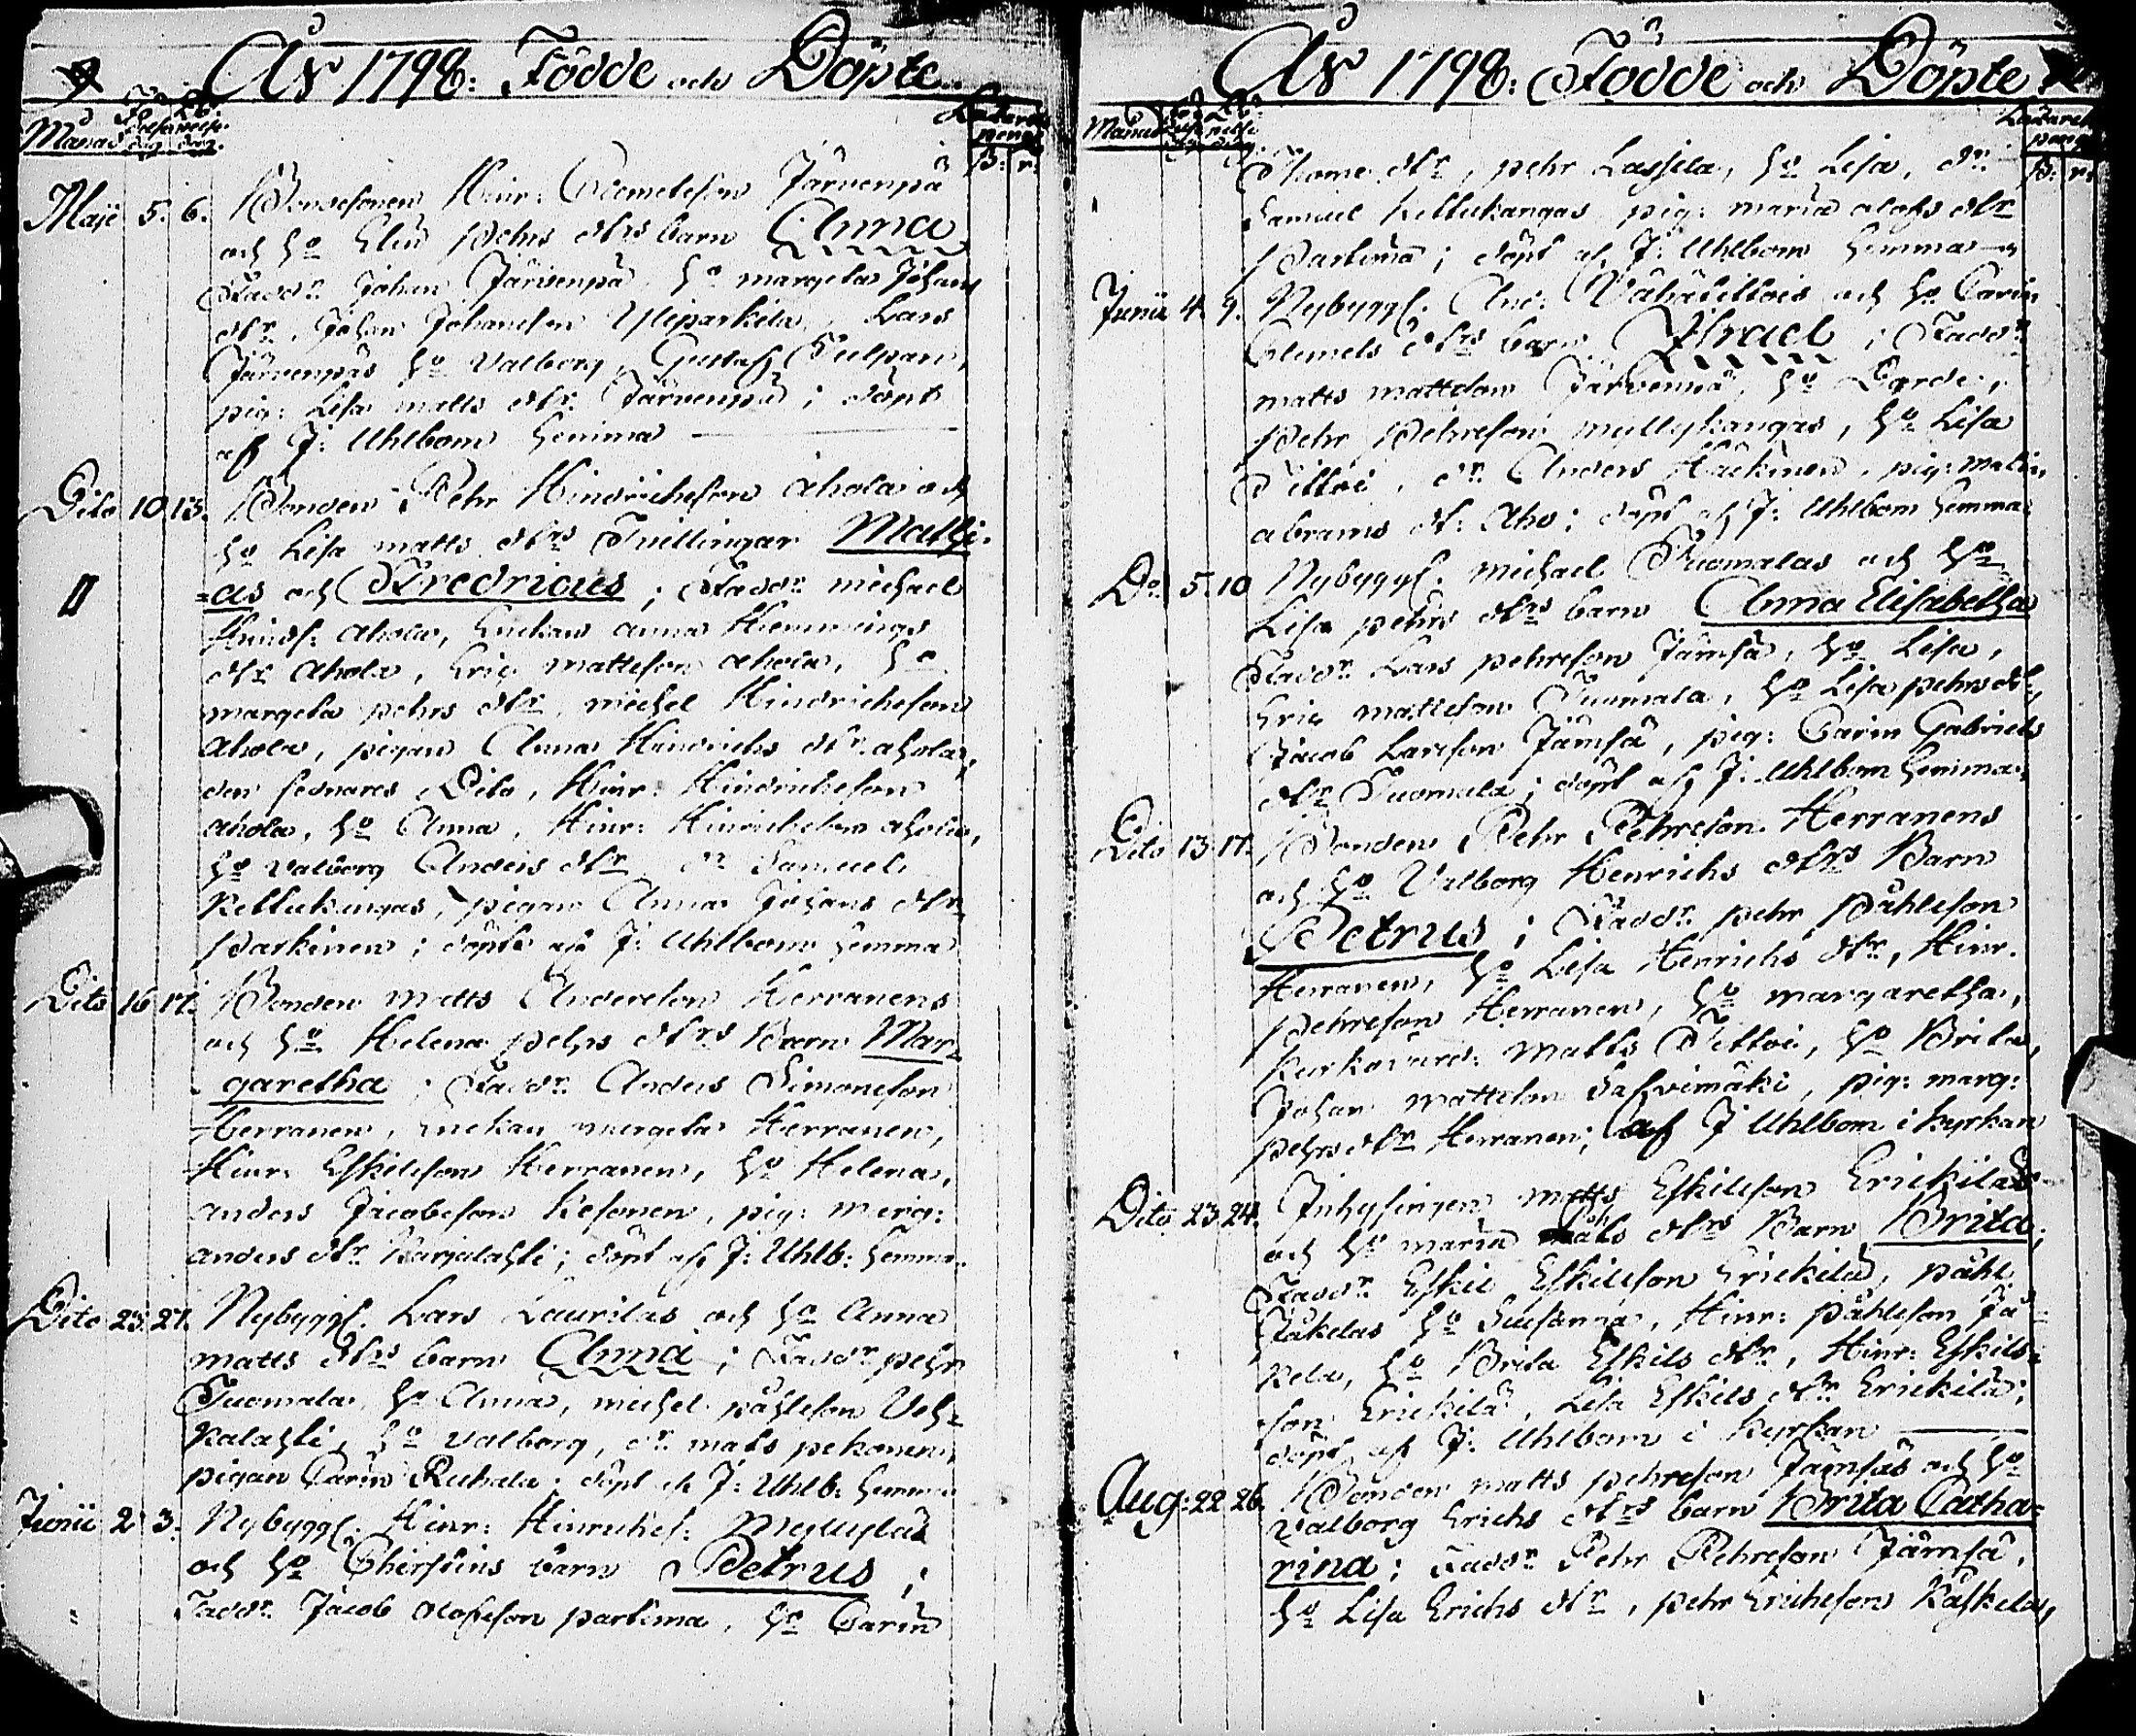 År 1798: Födde och Döpte
Månad
Maji 5. 6. Bondesonen Hinr: Järvenpä
och ho Elin Pehrs dtrs barn Anna
Fadd: Johan Järvenpä ho margeta Johans
dtr, Johan Johansson Yliparkila, Lars
Järvenpäs ho Valborg, Gustaf
pig: Lisa matts dtr Järvenpä; döpt
af J: Uhlbom hemma
Dito 10 13. Bonden Pehr Hindrichsson ahola och
ho Lisa matts dtrs Tvillingar Mathi-
II =as och Fredricus; Fadd: michael
Hindr: ahola, Enkan anna Hemmings
dtr ahola, Eric mattsson ahola, ho
margeta pehrs dtr, michel Hindrichsson
ahola, pigan Anna Hindrichs dtr ahola,
den sednares Dito, Hinr: Hindrichsson
ahola, ho Anna, Hinr: Hinrichsson ahola,
ho Valborg Anders dtr dr Samuel
Keltukangas, pigan Anna Johans dtr
Parkinen; döpte af J: Uhlbom hemma
Dito 16 17. Bonden matts Andersson Herranens
och ho Helena pehrs dtrs Barn Mar-
garetha; Fadd: Anders Simonsson
Herranen, Enkan margeta Herranen,
Hinr: Eskilsson Herranen, ho Helena,
anders Jacobsson Kesonen, pig: marg:
anders dtr Karjalahti; döpt af J: Uhlb: hemma.
Dito 25. 27. Nybygg. Lars Laurilas och ho Anna
matts dtrs barn Anna; Fadd: pehr
Tuomala ho Anna, michel påhlsson Veh-
kalahti, ho Valborg, dr mats pekonen,
pigan Carin Ruhala; döpt af J: Uhlb: hemma
Junii 2 3. Nybygg. Hinr: Hinrichs: Myllylä
och ho Chirstins barn Petrus;
Fadd: Jacob olofsson partima, ho Carin
År 1798: Födde och Döpte
Månad
Thome dtr, pehr Lassila, ho Lisa, dr
Samuel Keltukangas pig: maria olofs dtr
Partima; döpt af J: Uhlbom hemma
Junii 4. 9. Nybygg. And: Vähätittois och ho Carin
Clemets dtrs barn Israel; Fadd:
matts mattsson Järvenpä, ho Lgrde,
Pehr Pehrsson myllykangas, ho Lisa
Tittoi, dr Anders Häckinen, pig: malin
abrams dtr Aho; döpt af J: Uhlbom hemma
Do 5. 10 Nybygg. michael Tuomalas och ho
Lisa pehrs dtrs barn Anna Elisabetha
Fadd: Lars pehrsson Jämsä, ho Lisa,
Eric mattsson Tuomala, ho Lisa pehrs dtr,
Jacob Larsson Jämsä, pig: Carin Gabriels
dtr Tuomala; döpt af J: Uhlbom hemma
Dito 13 17. Bonden Pehr Pehrsson Herranens
och ho Valborg Henrichs dtrs Barn
Petrus; Fadd: pehr Påhlsson
Herranen, ho Lisa Henrichs dtr, Hinr.
Pehrsson Herranen, ho margaretha,
Kyrkovärd: Matts Tittoi, ho Brita,
Johan mattsson Safvimäki, pig: marg:
pehrs dtr Herranen; af J Uhlbom i kyrkan
Dito 23 24. Inhysingen matts Eskilsson Erickiläs
och ho maria dtrs Barn Brita;
Fadd: Eskil Eskilsson Erickilä, påhl
Jäkeläs ho Susanna, Hinr: påhlsson Jä-
kelä, ho Brita Eskils dtr, Hinr: Eskils-
son Erickilä, Lisa Eskils dtr Erickilä;
döpt af J: Uhlbom i Kyrkan
Aug: 22 26. Bonden matts pehrsson Jämsäs och ho
Valborg Erichs dtrs barn Brita Catha-
rina; Fadd: Pehr Pehrsson Jämsä,
ho Lisa Erichs dtr, pehr Erichsson Kaskela,